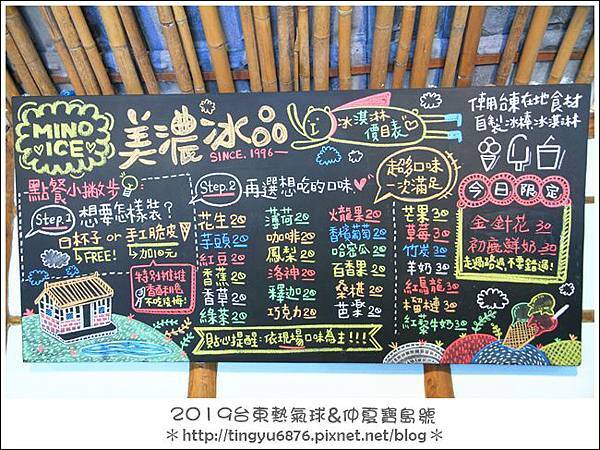 MINO
ICE
美濃冰品
SINCE.1996
冰淇淋
價目表
使用台東在地食材
自製冰棒冰淇淋
點餐小撇步:
Step.1
想要怎樣裝?
白杯子 or 手工脆皮
FREE! 加10元
特別推推
香酥脆皮
不吃後悔!
Step.2 再選想吃的口味
花生20
芋頭20
紅豆20
香蕉20
香草20
綠茶20
薄荷20
咖啡20
鳳梨20
洛神20
釋迦20
巧克力20
火龍果20
香檳葡萄20
哈密瓜20
百香果20
桑椹20
芭樂20
超多口味
一次滿足
芒果30
草莓30
竹炭30
羊奶30
紅烏龍30
榴槤30
紅藜牛奶30
今日限定
金針花30
初鹿鮮奶30
走過路過不要錯過!
貼心提醒:依現場口味為主!!!
2019台東熱氣球&仲夏寶島號
*http://tingyu6876.pixnet.net/blog*